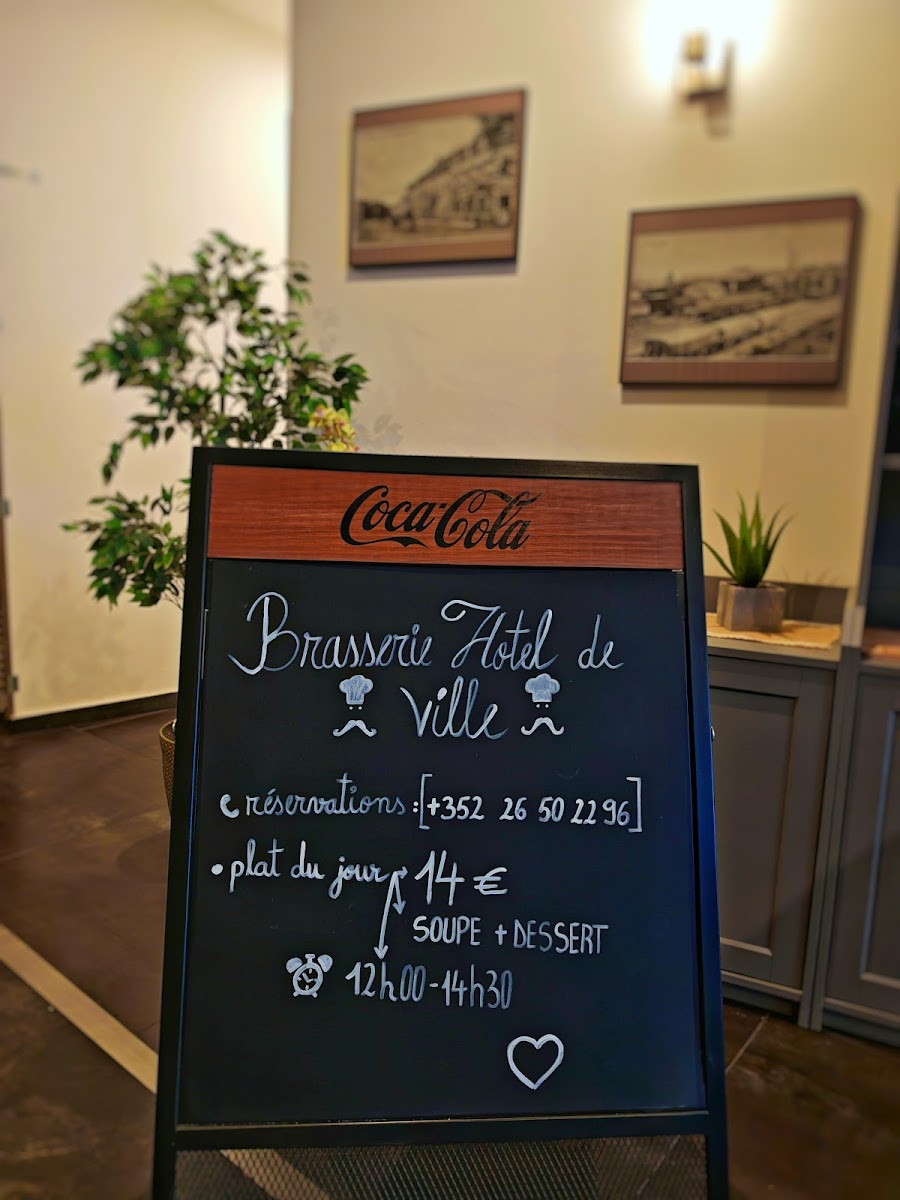 Coca-Cola
Brasserie Hotel de
Ville
réservations : [+352 26 50 22 96]
• plat du jour → 14 €
SOUPE + DESSERT
12h00 - 14h30